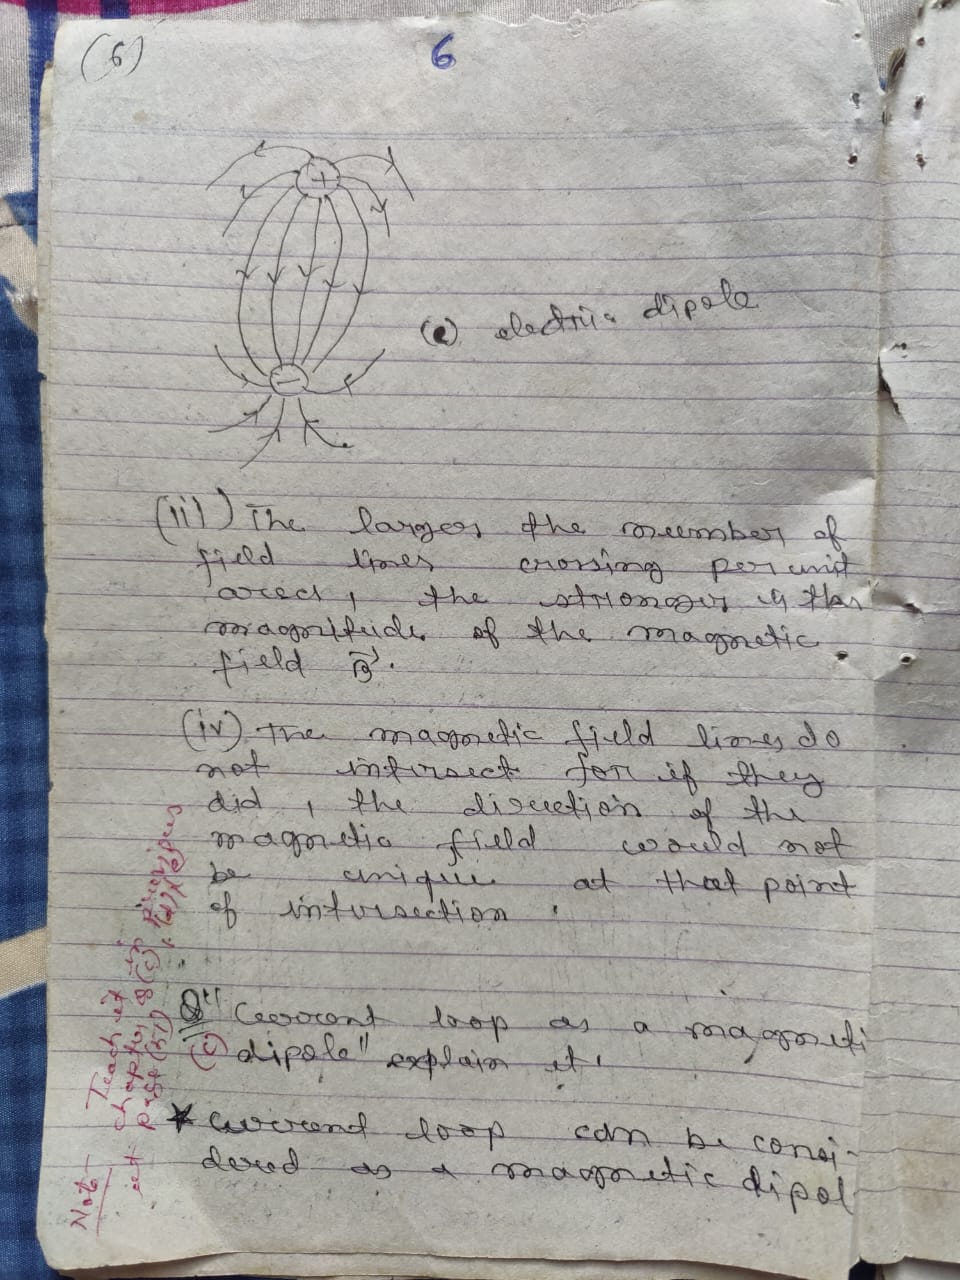 (6)
6
+
−
(e) electric dipole
(iii) The larger the number of
field lines crossing per unit
area, the stronger is the
magnitude of the magnetic
field B⃗.
(iv) The magnetic field lines do
not intersect for if they
did, the direction of the
magnetic field would not
be unique at that point
of intersection.
Q" Current loop as a magneti
(c) dipole" explain it.
* Current loop can be consi-
dered as a magnetic dipol
Note Teach it
at chapter 8(c) in previous
page (51)